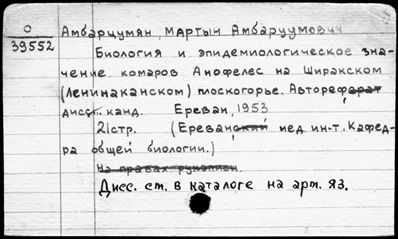 О
39552
Амбарцумян, Мартын Амбарцумович
Биология и эпидемиологическое зна-
чение комаров Анофелес на Ширакском
(Ленинаканском) плоскогорье. Автореферат
дисс. канд. Ереван, 1953
21стр. (Ереванский мед. ин-т. Кафед-
ра общей биологии.)
На правах рукописи.
Дисс. ст. в каталоге на арт. яз.